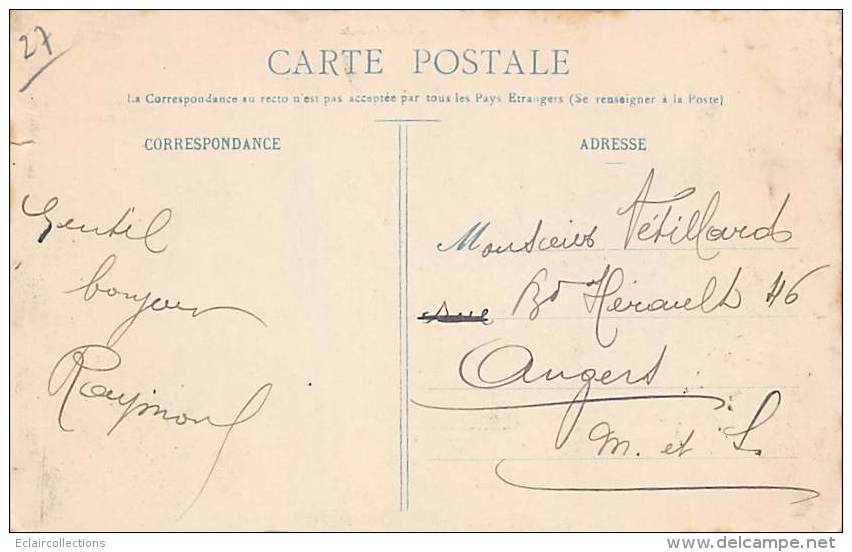 27
CARTE POSTALE
La Correspondance au recto n'est pas acceptée par tous les Pays Etrangers (Se renseigner à la Poste)
CORRESPONDANCE
Gentil
bonjour
Raymond
ADRESSE
Monsieur Vétillard
Bd Hérault 46
Angers
M. et L.
Eclaircollections
www.delcampe.net